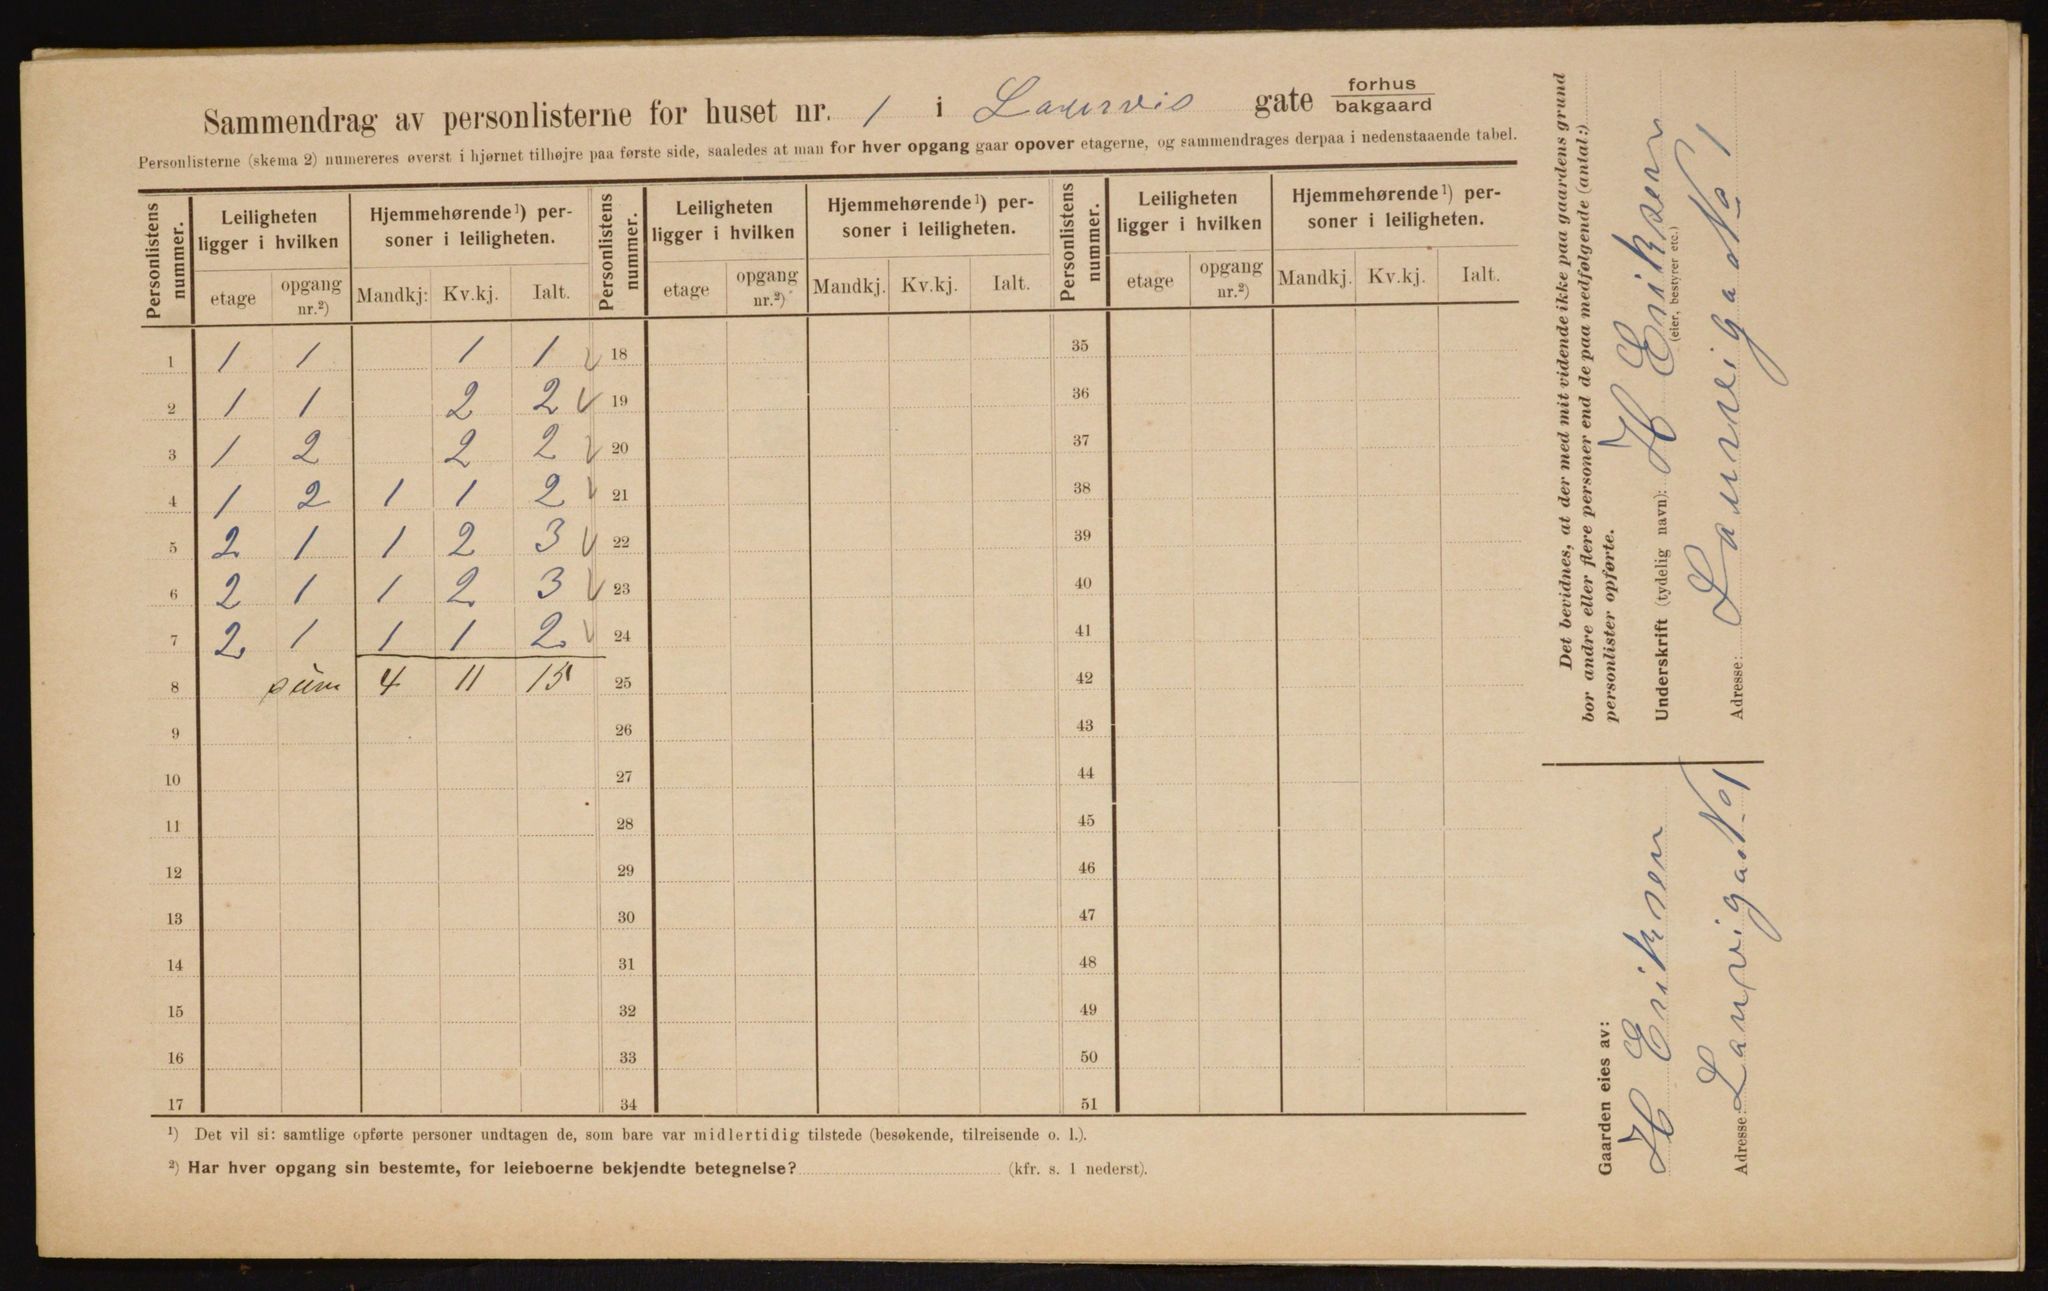 Sammendrag av personlisterne for huset nr. 1 i Laurvis gate forhus bakgaard
Personlisterne (skema 2) numereres øverst i hjørnet tilhøjre paa første side, saaledes at man for hver opgang gaar opover etagerne, og sammendrages derpaa i nedenstaaende tabel.
Personlistens nummer. Leiligheten ligger i hvilken Hjemmehørende ¹) personer i leiligheten. Personlistens nummer. Leiligheten ligger i hvilken Hjemmehørende ¹) personer i leiligheten. Personlistens nummer. Leiligheten ligger i hvilken Hjemmehørende ¹) personer i leiligheten.
etage opgang nr.²) Mandkj: Kv.kj. Ialt. etage opgang nr.²) Mandkj. Kv.kj. Ialt. etage opgang nr.²) Mandkj. Kv.kj. Ialt.
1 1 1 1 1 √ 18 35
2 1 1 2 2 √ 19 36
3 1 2 2 2 √ 20 37
4 1 2 1 1 2 √ 21 38
5 2 1 1 2 3 √ 22 39
6 2 1 1 2 3 √ 23 40
7 2 1 1 1 2 √ 24 41
8 sum 4 11 15 25 42
9 26 43
10 27 44
11 28 45
12 29 46
13 30 47
14 31 48
15 32 49
16 33 50
17 34 51
¹) Det vil si: samtlige opførte personer undtagen de, som bare var midlertidig tilstede (besøkende, tilreisende o. l.).
²) Har hver opgang sin bestemte, for leieboerne bekjendte betegnelse? (kfr. s. 1 nederst).
Det bevidnes, at der med mit vidende ikke paa gaardens grund
bor andre eller flere personer end de paa medfølgende (antal:)
personlister opførte.
Underskrift (tydelig navn): H Eriksen
(eier, bestyrer etc.)
Adresse: Laurviga No 1
Gaarden eies av:
H Eriksen
Adresse: Laurviga. No 1